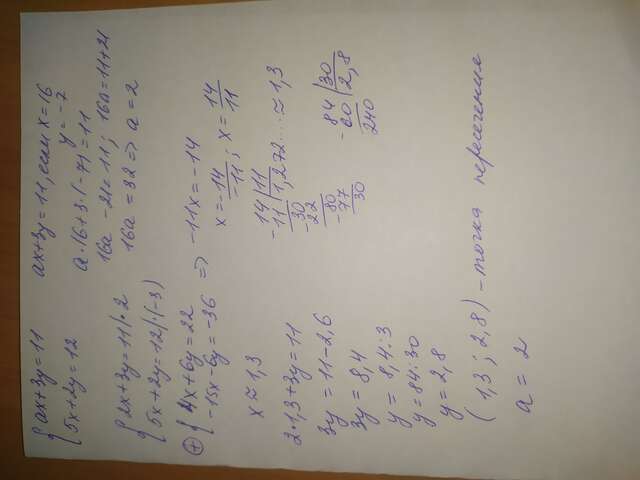 {ax+3y=11
{5x+2y=12
ax+3y=11, если x=16
y=-7
a·16+3·(-7)=11
16a-21=11; 16a=11+21
16a=32 => a=2
{2x+3y=11|·2
{5x+2y=12|·(-3)
⊕ {4x+6y=22
{-15x-6y=-36 => -11x=-14
x=-14/-11; x=14/11
x≈1,3
14|11
-11|1,272...≈1,3
30
-22
80
-77
30
2·1,3+3y=11
3y=11-2,6
3y=8,4
y=8,4:3
y=84:30
y=2,8
84|30
-60|2,8
240
(1,3; 2,8) - точка пересечения
a=2